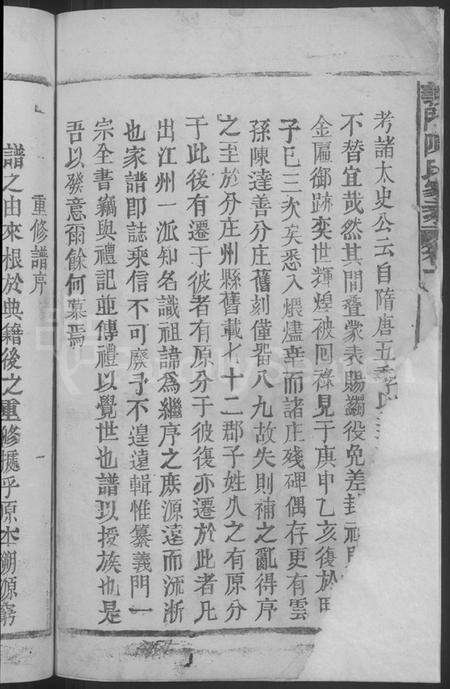 義門陳氏家乘卷一
考諸太史公云自隋唐五季
不替宜哉然其間疊蒙表賜蠲役免差封
金匾御跡奕世輝煌被回祿見于庚申乙亥復於
子巳三次矣悉入煨燼幸而諸庄殘碑偶存更有雲
孫陳達善分庄舊刻僅畧八九故失則補之亂得序
之至於分庄州縣舊載七十二郡子姓久之有原分
于此後有遷于彼者有原分于彼復亦遷於此者凡
出江州一派知名識祖諱為繼序之庶源遠而流淅
也家譜即誌乘信不可廢予不遑遠輯惟纂義門一
宗全書竊與禮記並傳禮以覺世也譜以授族也是
吾以發意爾餘何慕焉
重修譜序
譜之由來根於典籍後之重修攄乎原本朔源窮